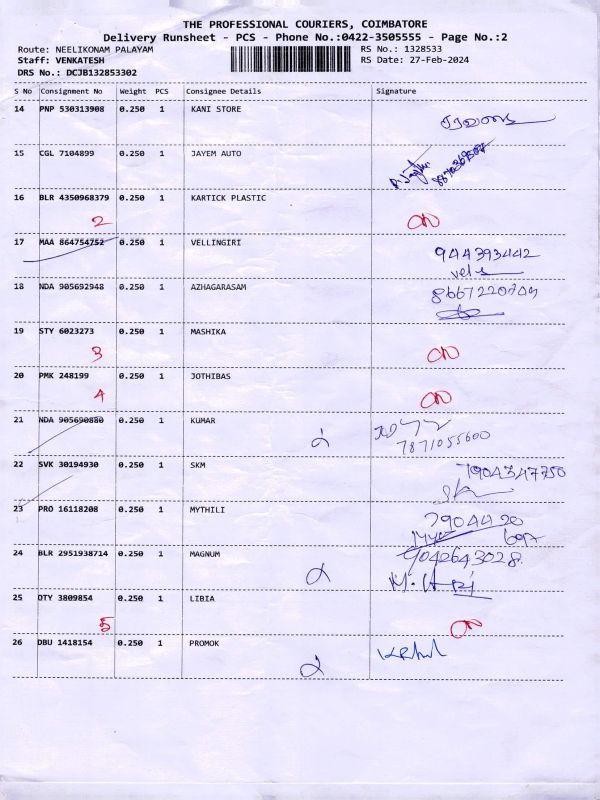 THE PROFESSIONAL COURIERS, COIMBATORE
Delivery Runsheet - PCS - Phone No.:0422-3505555 - Page No.:2
Route: NEELIKONAM PALAYAM RS No.: 1328533
Staff: VENKATESH RS Date: 27-Feb-2024
DRS No.: DCJB132853302
S No Consignment No Weight PCS Consignee Details Signature
14 PNP 530313908 0.250 1 KANI STORE
சரவணன்
15 CGL 7104899 0.250 1 JAYEM AUTO
16 BLR 4350968379 0.250 1 KARTICK PLASTIC
2
17 MAA 864754752 0.250 1 VELLINGIRI
944393442
vels
18 NDA 905692948 0.250 1 AZHAGARASAM
19 STY 6023273 0.250 1 MASHIKA
3
20 PMK 248199 0.250 1 JOTHIBAS
4
21 NDA 905690880 0.250 1 KUMAR
7871055600
22 SVK 30194930 0.250 1 SKM
7904347750
23 PRO 16118208 0.250 1 MYTHILI
7904420
24 BLR 2951938714 0.250 1 MAGNUM
9042643028
M. HARI
25 OTY 3809854 0.250 1 LIBIA
5
26 DBU 1418154 0.250 1 PROMOK